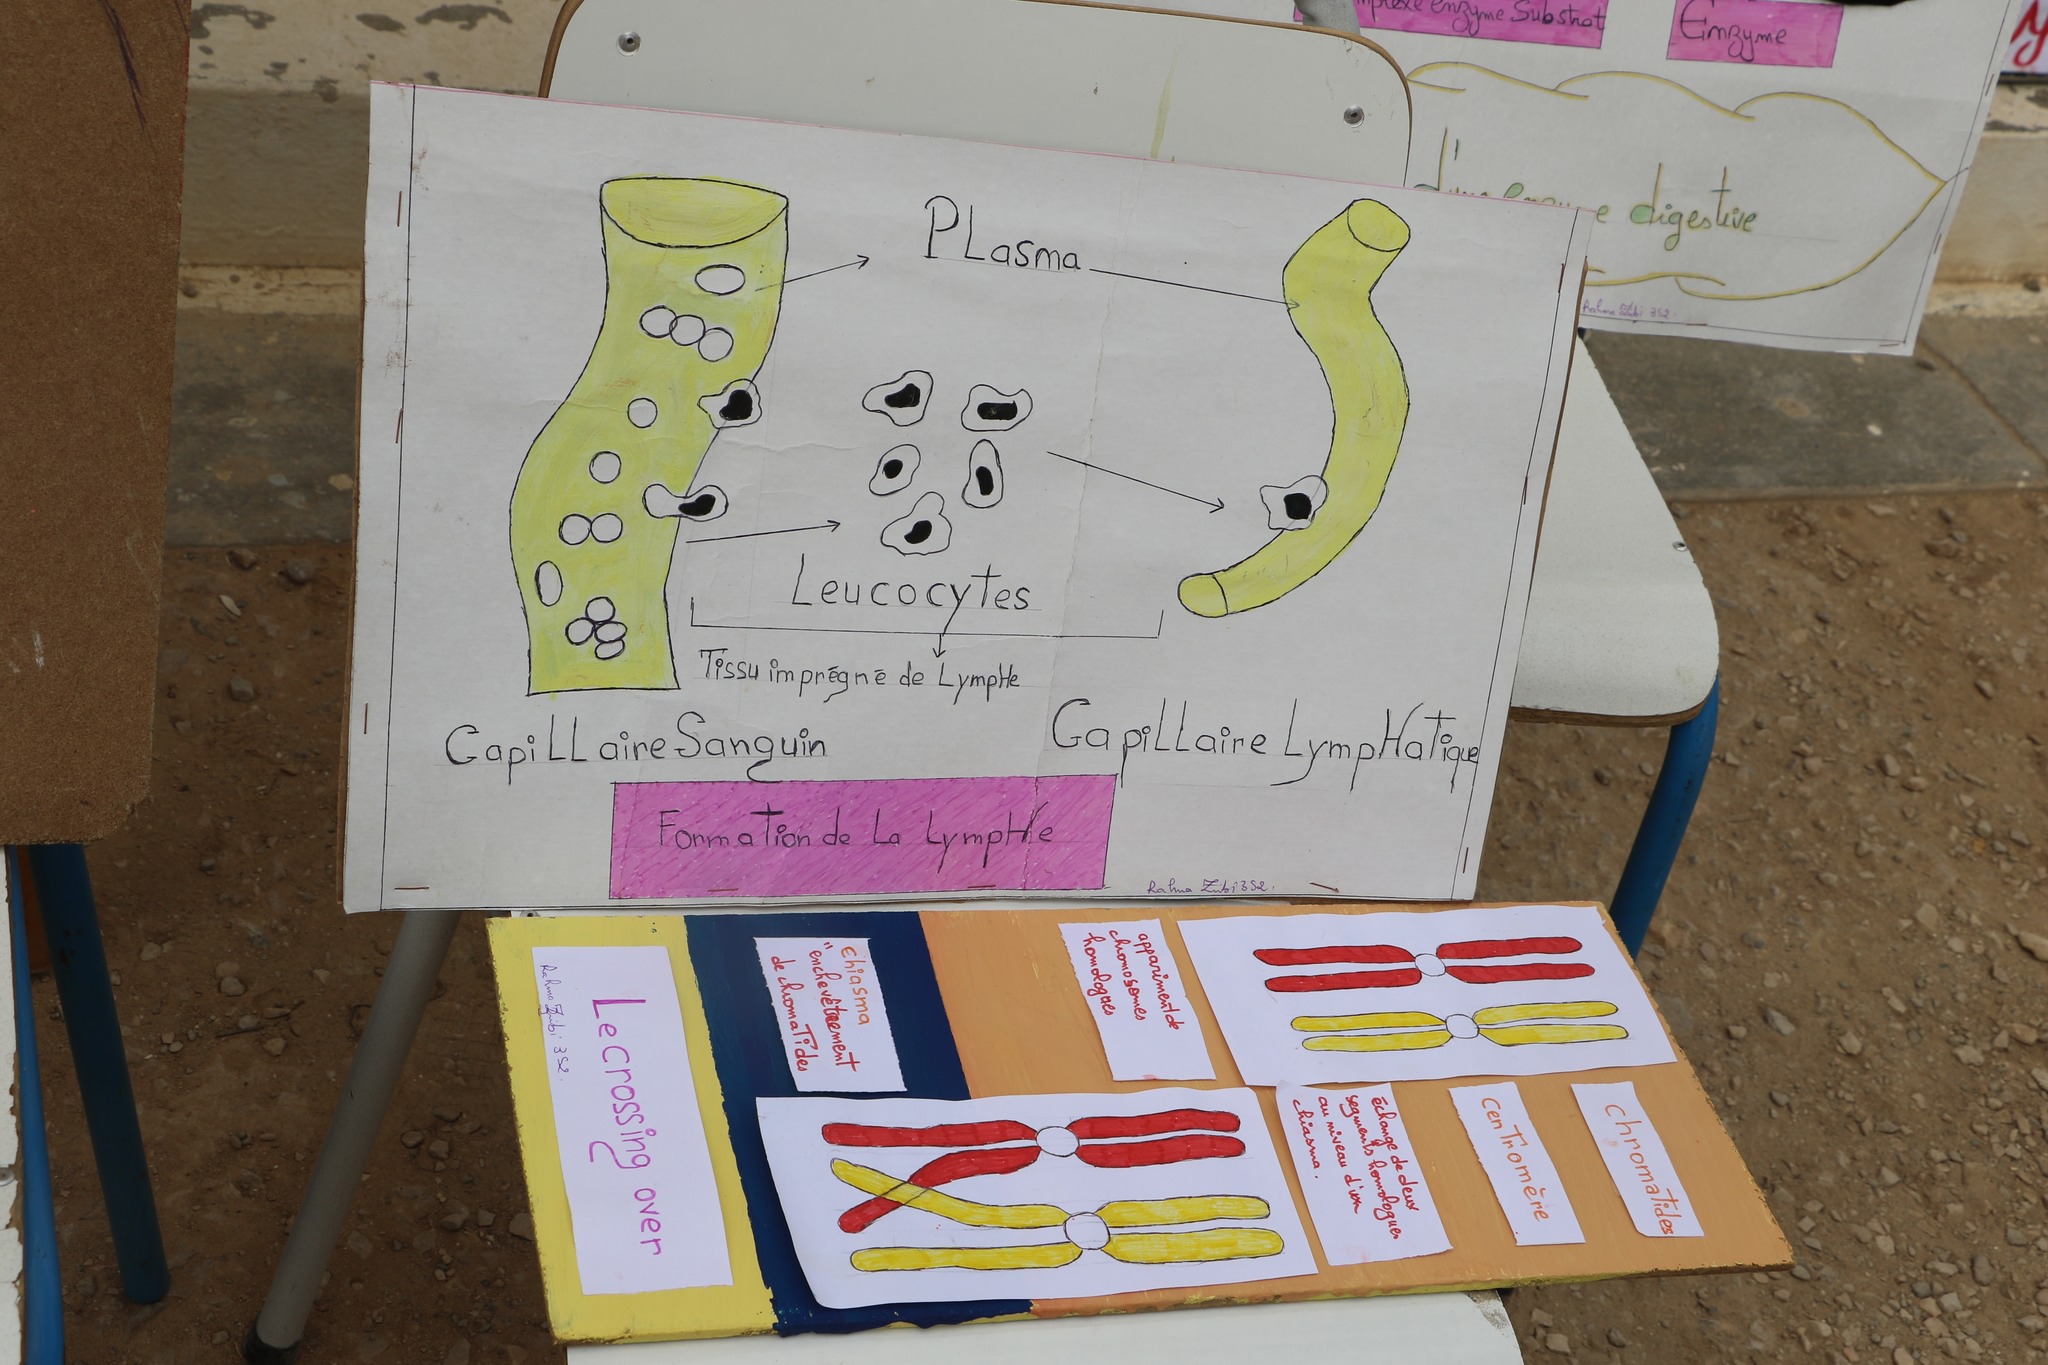 enzyme Substrat
Enzyme
d'une enzyme digestive
Rahma Zribi 3S2.
PLasma
Leucocytes
Tissu imprégné de LympHe
CapiLLaire Sanguin
CapiLLaire LympHatique
Formation de La LympHe
Rahma Zribi 3S2.
Le crossing over
Rahma Zribi 3S2.
chiasma
"enchevêtrement
de chromatides
appariment de
chromosomes
homologues
échange de deux
segments homologues
au niveau d'un
chiasma.
centromère
chromatides